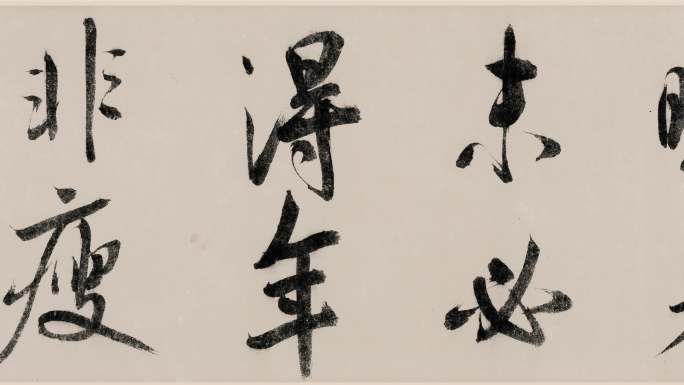 未必
得年
非瘦